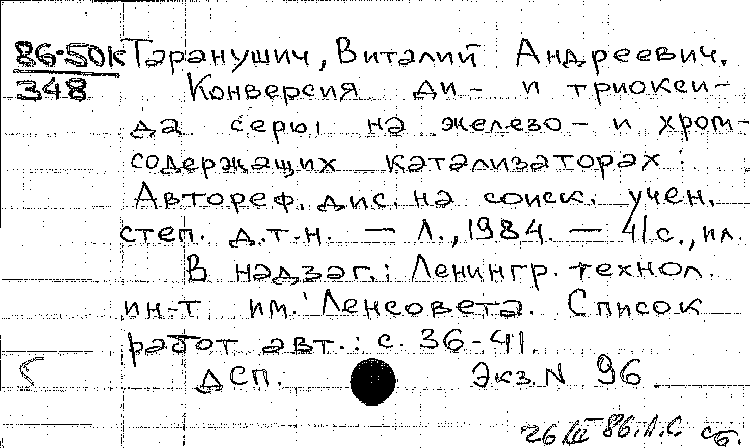 86-50к Таранушич, Виталий Андреевич.
348 Конверсия ди- и триокси-
да серы на железо- и хром-
содержащих катализаторах:
Автореф. дис. на соиск. учен.
степ. д.т.н. — Л., 1984. — 41 с., ил.
В надзаг.: Ленингр. технол.
ин-т им. Ленсовета. Список
работ авт.: с. 36-41.
ДСП. Экз. N 96
26 III 86. Л.С. сб.